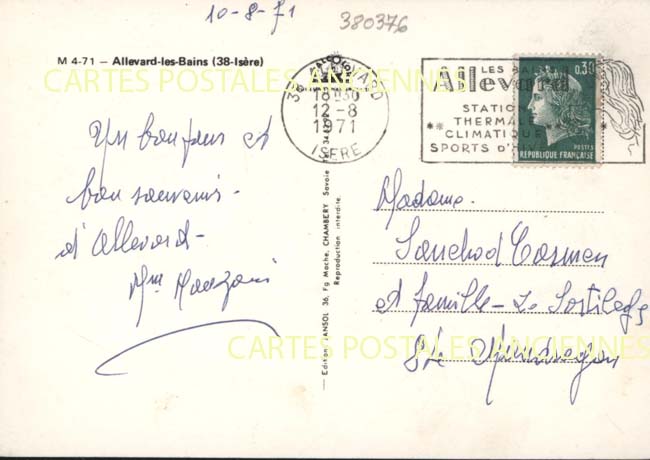 10-8-71
380376
M 4-71 — Allevard-les-Bains (38-Isère)
CARTES POSTALES ANCIENNES
38 ALLEVARD
18H30
12-8
1971
ISERE
LES BAINS
Allevard
STATION
THERMALE
CLIMATIQUE
SPORTS D'HIVER
0,30
POSTES
REPUBLIQUE FRANÇAISE
Un bonjour et
bon souvenir
d'Allevard-
Mme
Editions JANSOL 36, Fg Mache, CHAMBERY Savoie
Reproduction interdite.
Madame.
Carmen
et famille - Le Sortilège
Ste
CARTES POSTALES ANCIENNES